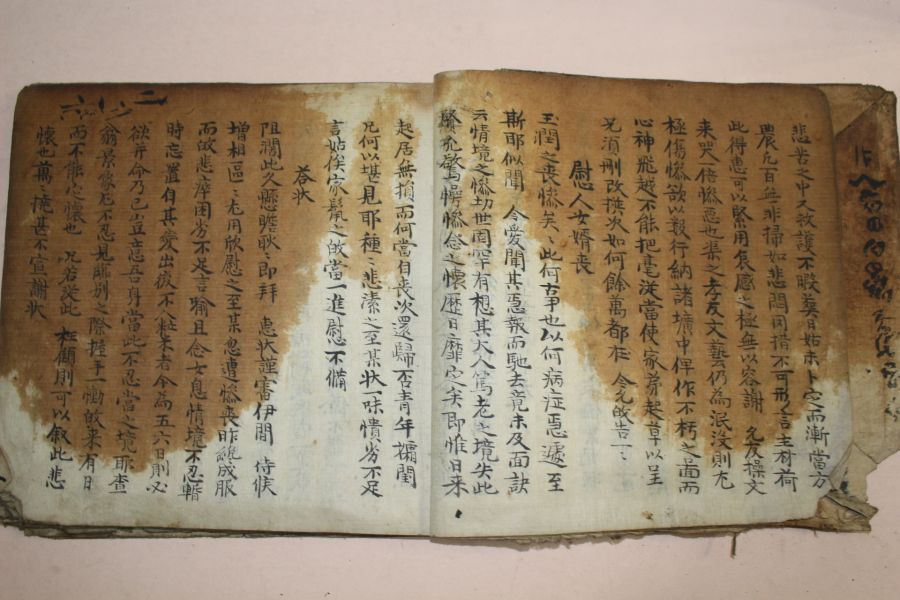 悲苦之中又救護不暇葬日姑未卜定而漸當方
農凡百無非掃如悲悶罔措不可形言主材荷
此得惠可以緊用哀感之極無以容謝 允及操文
來哭倍慘悪也渠之孝友文藝仍為泯沒則尤
極傷慘欲以數行納諸壙中俾作不朽之面而
心神飛越不能把毫玆當使家弟起草以呈
兄須刪改挨次如何餘萬都在 令允告
慰人女婿喪
玉潤之喪慘矣〻此何事也以何病症悪遽至
斯耶似聞 令愛聞其悪報而馳去竟未及面訣
云情境之慘切世間罕有想其大人篤老之境失此
賢允驚愕慘念之懷歷日靡定矣即惟日來
起居無損而何當自喪次還歸否青年孀閨
兄何以堪見耶種〻悲溸之至某狀一味憒劣不足
言姑俟家髥之故當一進慰不備
答狀
阻濶此久懸瞻耿〻即拜 惠狀謹審伊間 侍候
增相區〻尤用欣慰之至某忽遭慘喪昨纔成服
而故悲摩困劣不足言喻且念女息情境不忍暫
時忘置自其愛出後不入粒米者今為五六日則必
欲并命乃已豈忘吾身當此不忍當之境耶查
翁景像尤不忍見臨別之際握手一慟故來有日
而不能心懷也 兄若從此 枉顧則可以敍此悲
懷也萬〻擾甚不宣謝狀